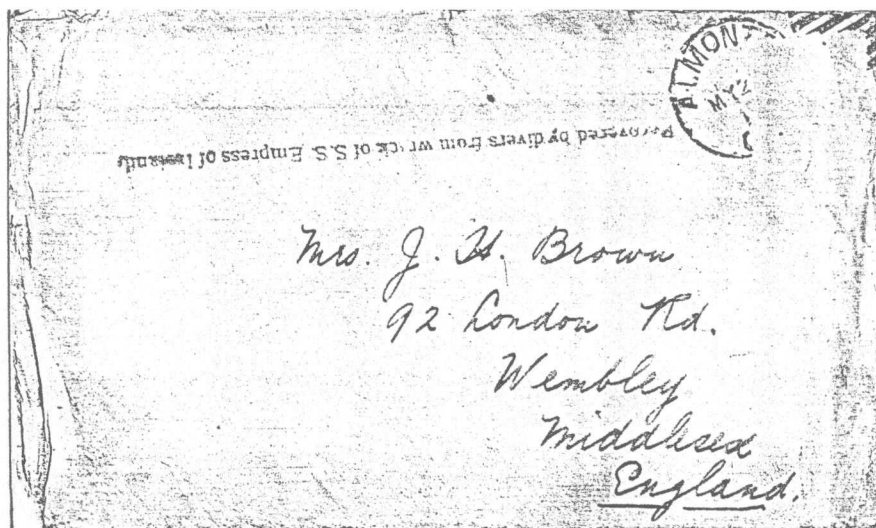 ALMONT
MY 2
Recovered by divers from wreck of S.S. Empress of Ireland
Mrs. J. H. Brown
92 London Rd.
Wembley
Middlesex
England.